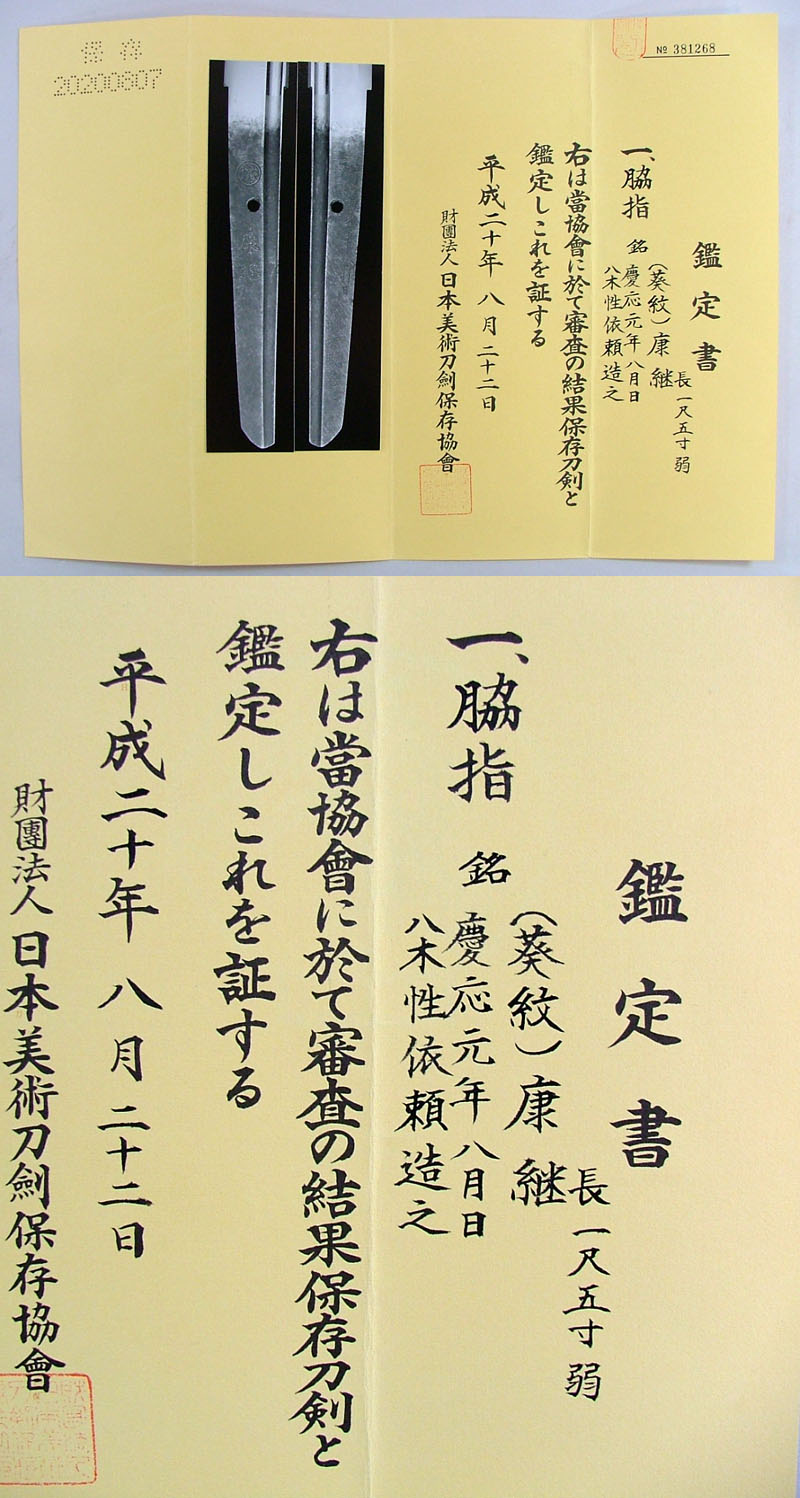 № 381268
鑑定書
長一尺五寸弱
一、脇指 銘 (葵紋)康継
慶応元年八月日
八木性依頼造之
右は當協會に於て審査の結果保存刀剣と
鑑定しこれを証する
平成二十年 八月 二十二日
財團法人 日本美術刀劍保存協會
保存
20200807
鑑定書
長一尺五寸弱
一、脇指 銘 (葵紋)康継
慶応元年八月日
八木性依頼造之
右は當協會に於て審査の結果保存刀剣と
鑑定しこれを証する
平成二十年 八月 二十二日
財團法人 日本美術刀劍保存協會